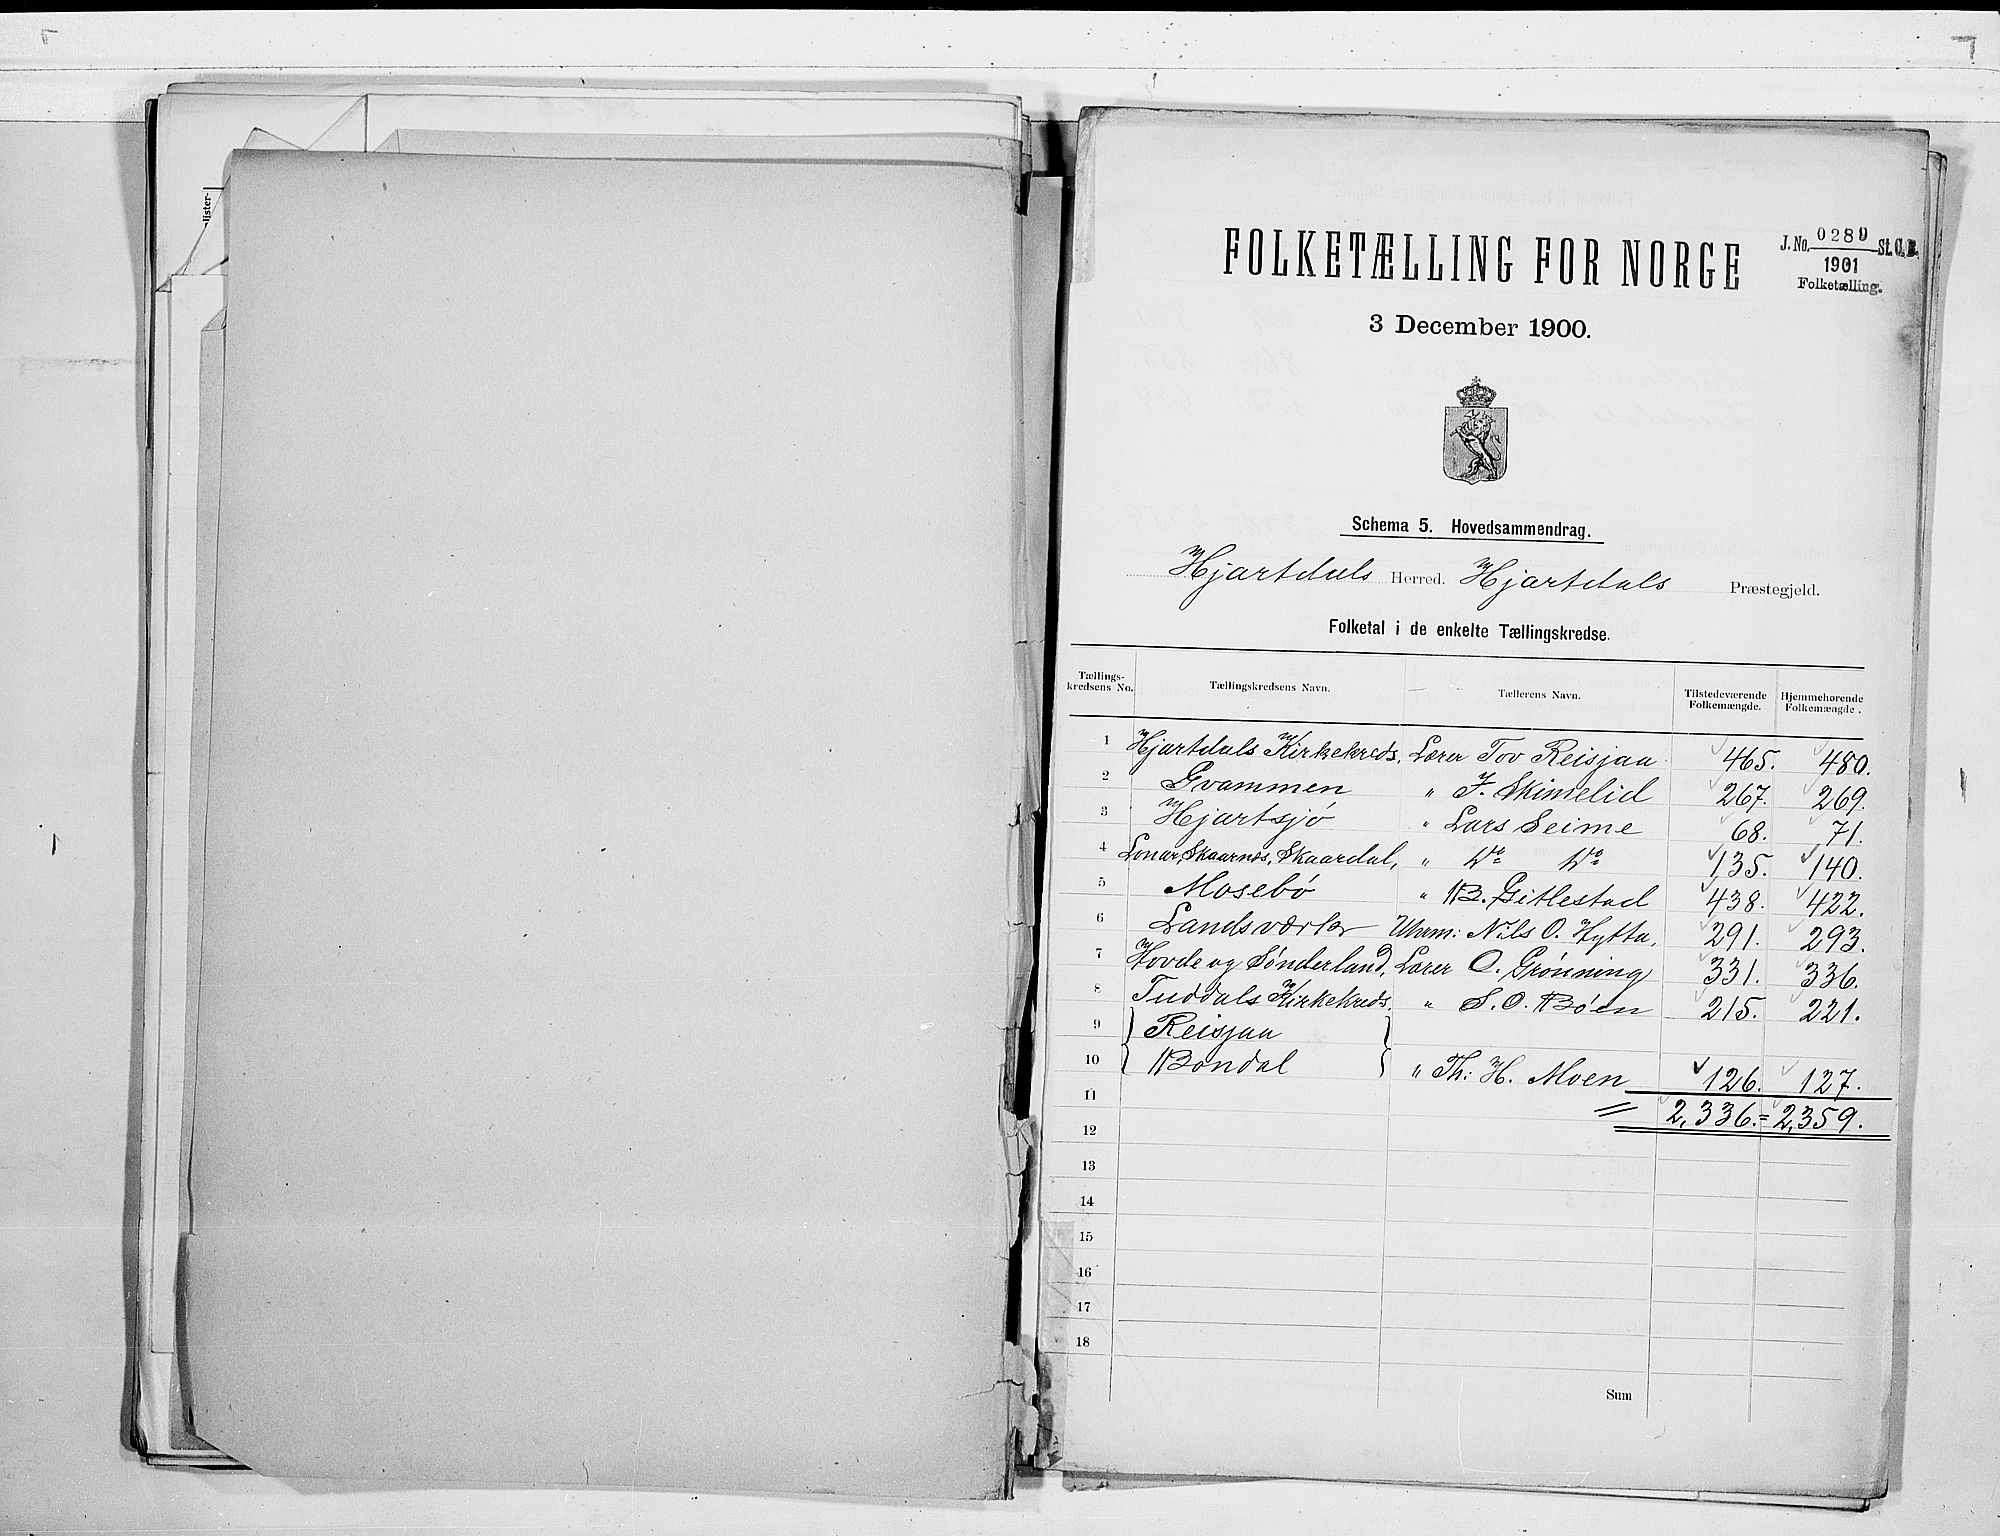 lister-
FOLKETÆLLING FOR NORGE
J. No. 0289 St. C. B.
1901
Folketælling.
3 December 1900.
Schema 5. Hovedsammendrag.
Hjartdals Herred. Hjartdals Præstegjeld.
Folketal i de enkelte Tællingskredse.
Tællings-kredsens No. Tællingskredsens Navn. Tællerens Navn. Tilstedeværende Folkemængde. Hjemmehørende Folkemængde.
1 Hjartdals Kirkekreds, Lærer Tov Reisjaa 465. 480.
2 Gvammen " J. Skimelid 267. 269.
3 Hjartsjø " Lars Seime 68. 71.
4 Lonar, Skaarnes, Skaardal, " Do Do 135. 140.
5 Mosebø " B. Gitlestad 438. 422.
6 Landsværk Uhrm: Nils O. Hytta, 291. 293.
7 Hovde og Sønderland, Lærer O. Grønning 331. 336.
8 Tuddals Kirkekreds. " S. O. Bøen 215. 221.
9 Reisjaa
10 Bondal " Th: H. Moen 126. 127.
11
2,336. = 2,359.
12
13
14
15
16
17
18
Sum